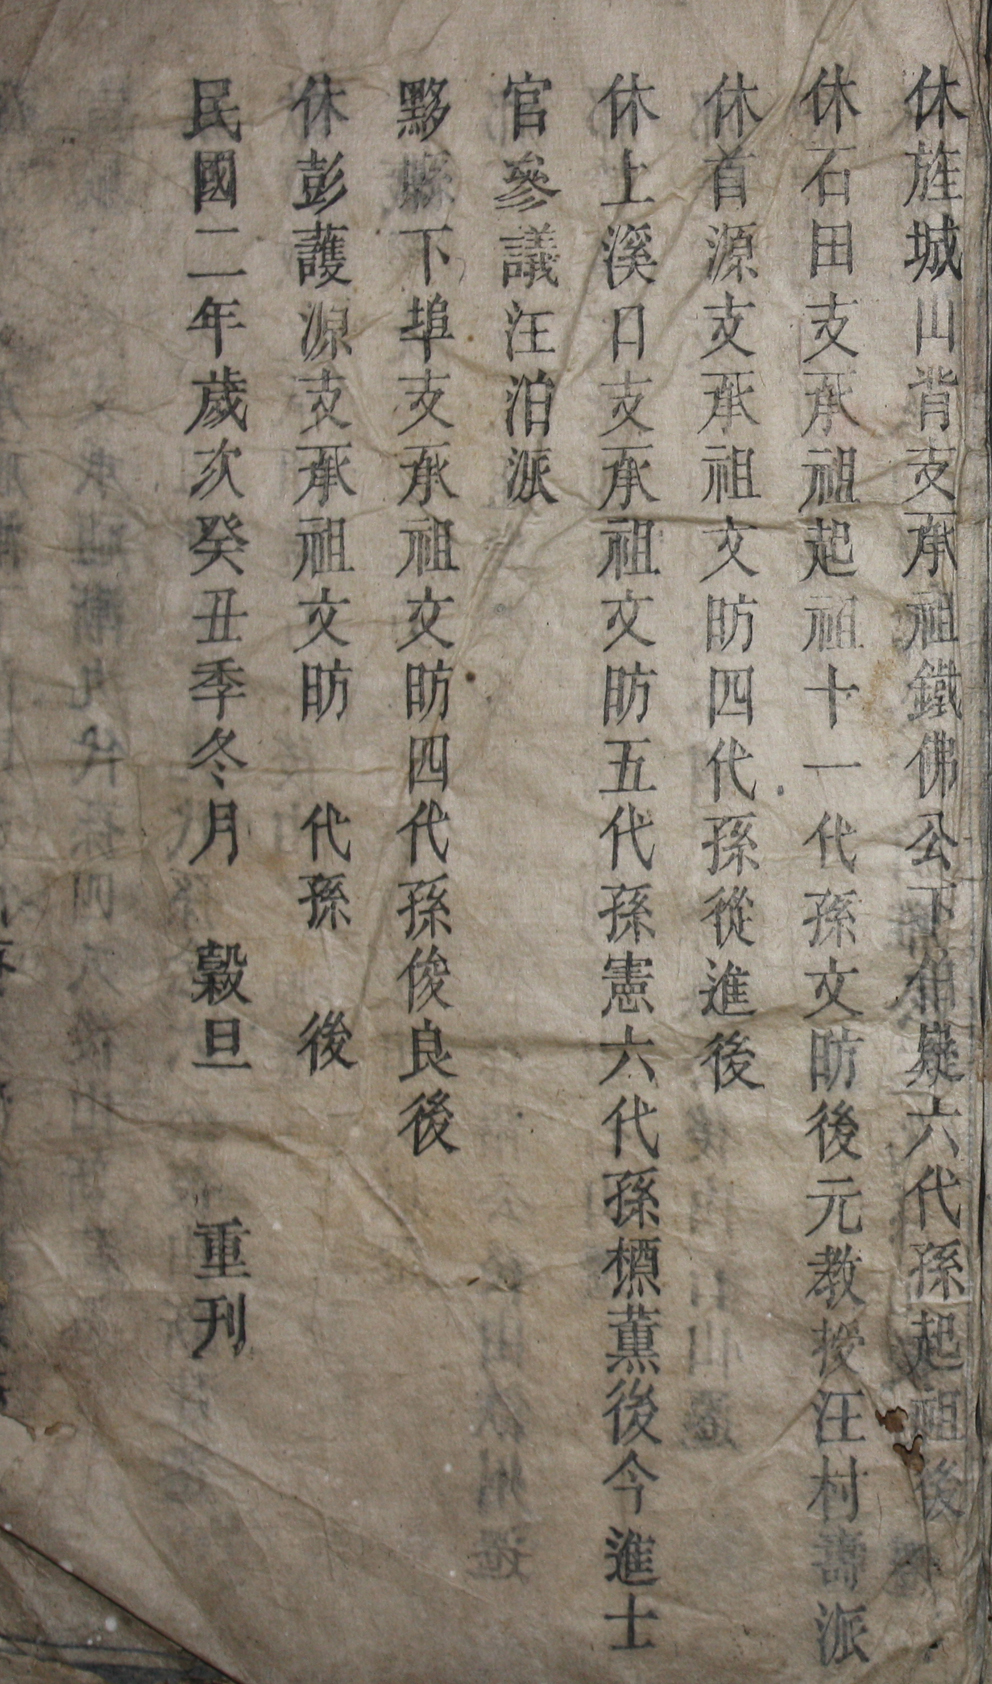 休旌城山背支承祖鐵佛公下伯嶷六代孫起祖後
休石田支承祖起祖十一代孫文昉後元教授汪村壽派
休首源支承祖文昉四代孫從進後
休上溪口支承祖文昉五代孫憲六代孫槱薰後今進士
官參議汪泊派
黟縣下埠支承祖文昉四代孫俊良後
休彭護源支承祖文昉 代孫 後
民國二年歲次癸丑季冬月 穀旦 重刊